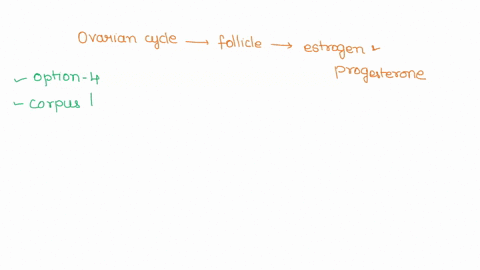 Ovarian cycle → follicle → estrogen &
Progesterone
✓ Option-4
✓ Corpus l